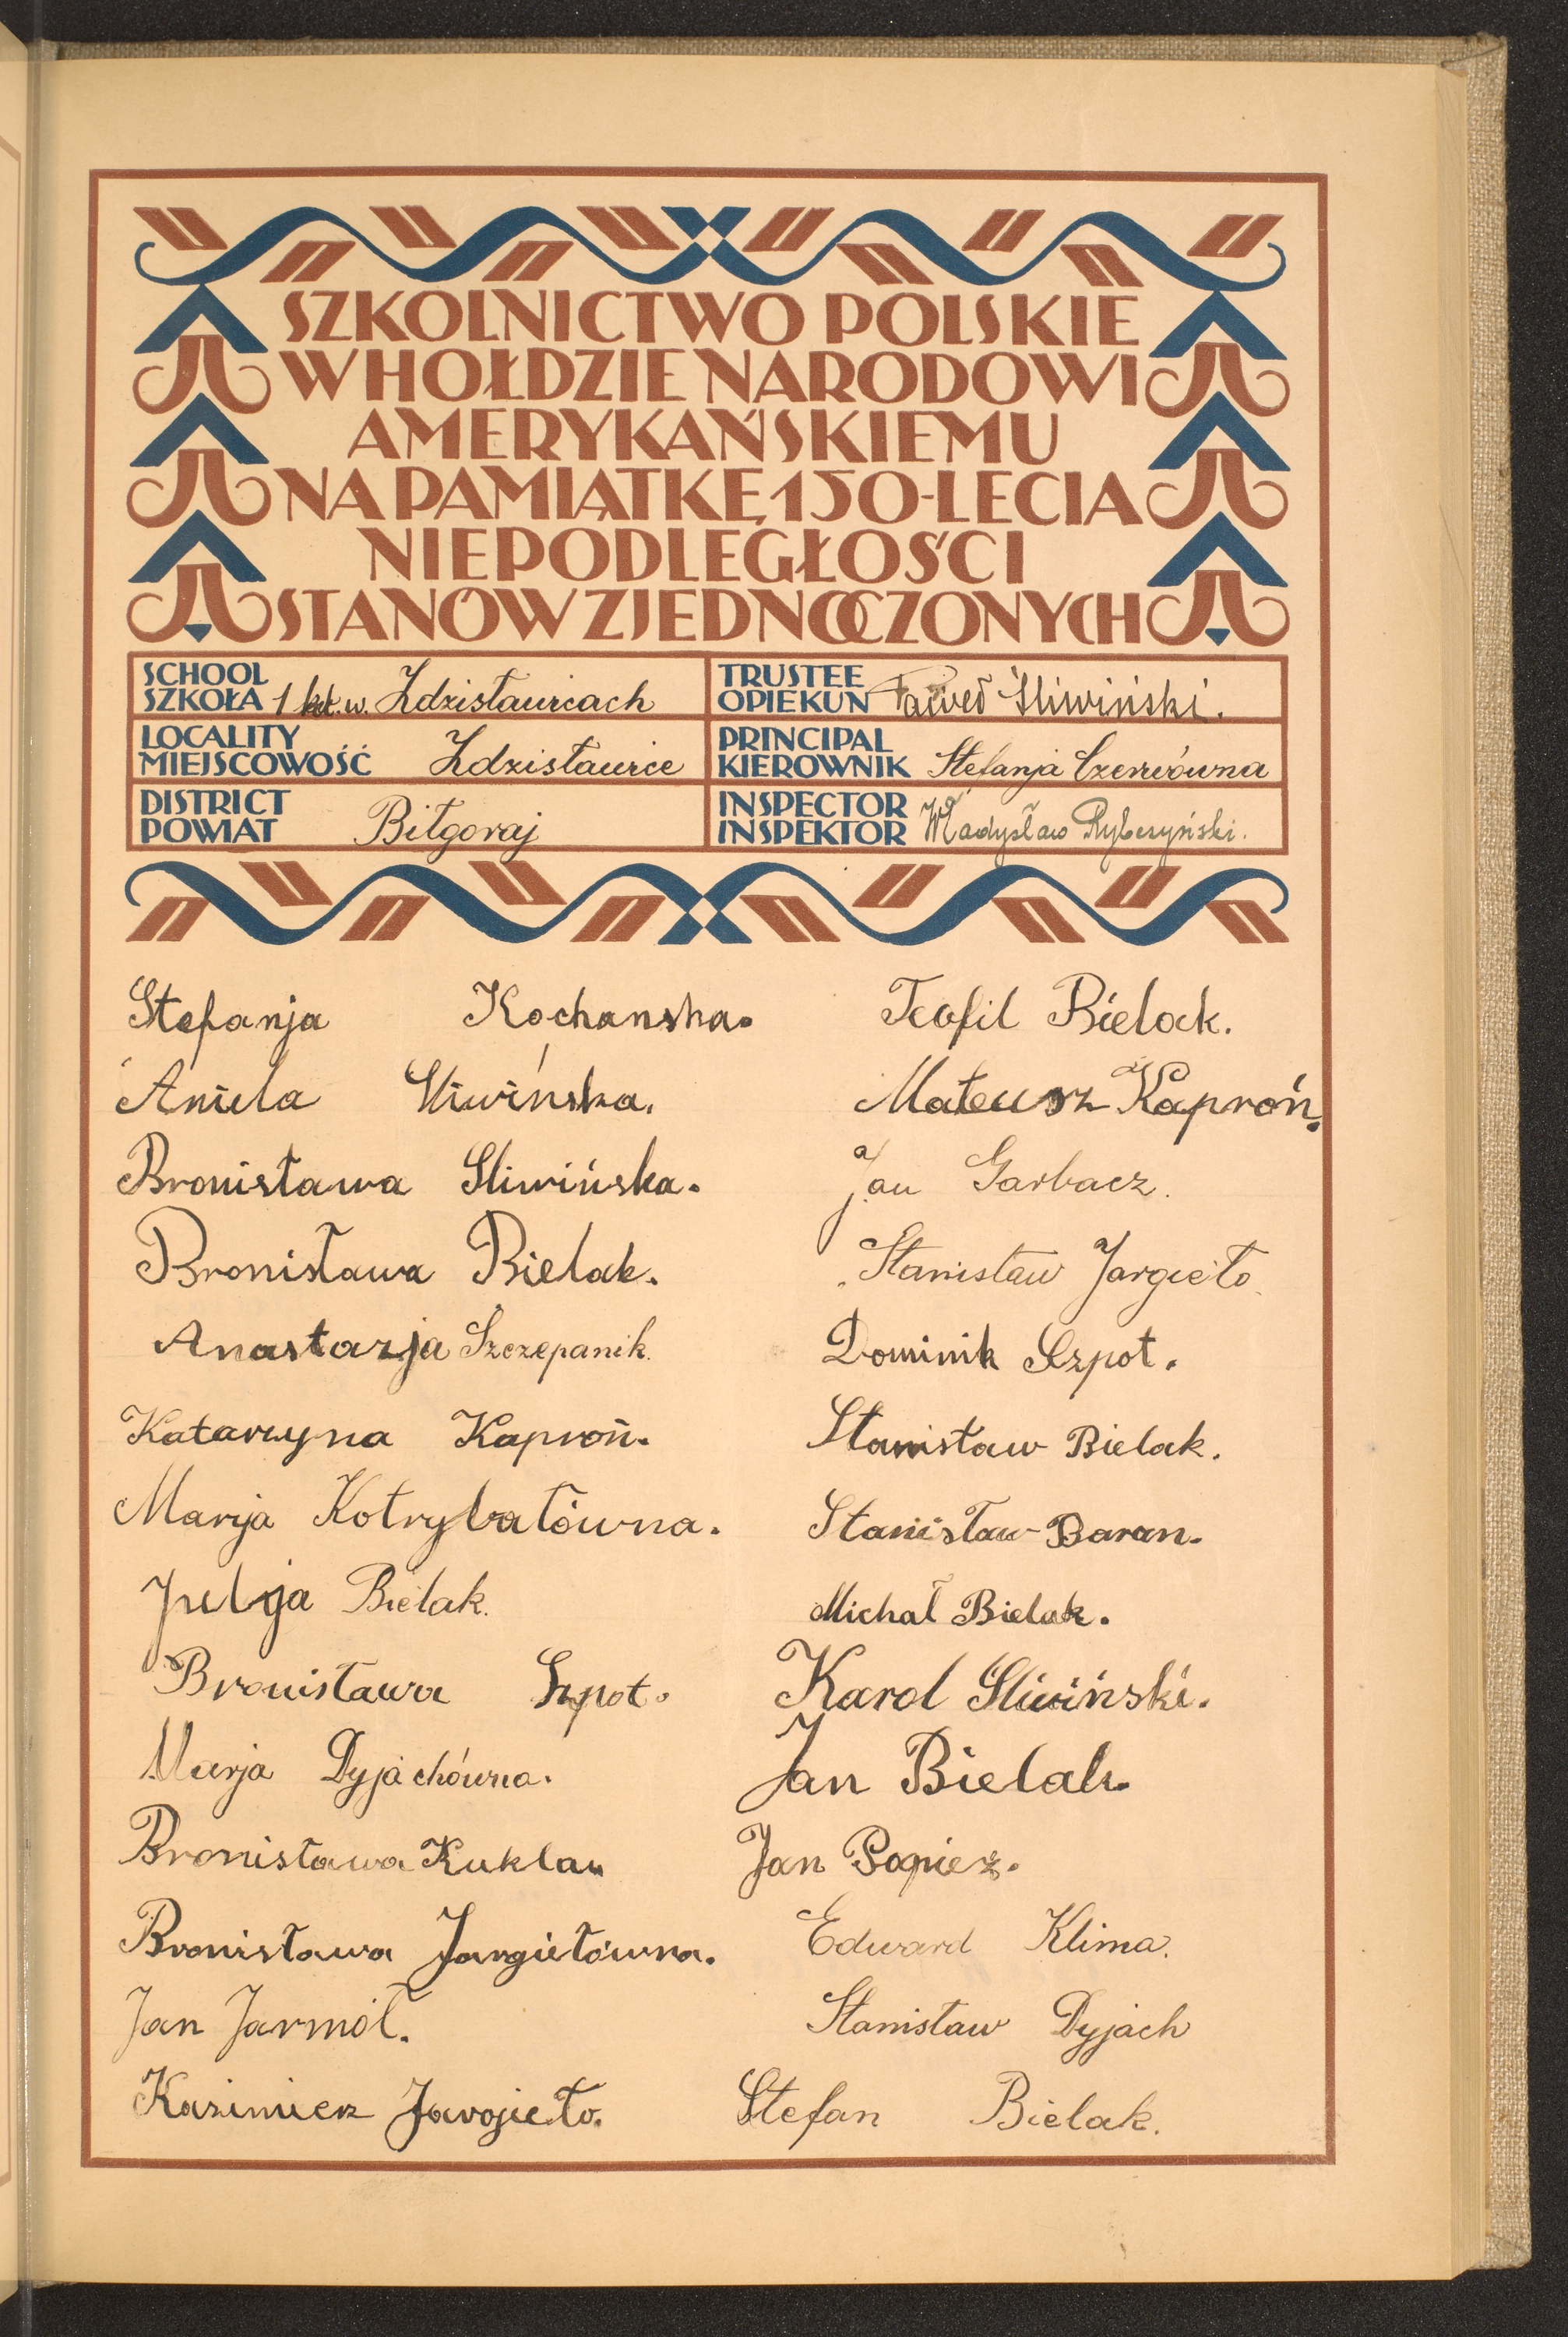 SZKOLNICTWO POLSKIE
W HOŁDZIE NARODOWI
AMERYKAŃSKIEMU
NA PAMIĄTKĘ 150-LECIA
NIEPODLEGŁOŚCI
STANÓW ZJEDNOCZONYCH
SCHOOL
SZKOŁA 1 kl. w. Zdzisławicach
LOCALITY
MIEJSCOWOŚĆ Zdzisławice
DISTRICT
POWIAT Biłgoraj
TRUSTEE
OPIEKUN Paweł Śliwiński.
PRINCIPAL
KIEROWNIK Stefanja Czerwówna
INSPECTOR
INSPEKTOR Władysław Rybczyński.
Stefanja Kochanska.
Aniela Śliwińska.
Bronisława Sliwińska.
Bronisława Bielak.
Anastazja Szczepanik.
Katarzyna Kaproń.
Marja Kotrybałówna.
Julja Bielak.
Bronisława Szpot.
Marja Dyjachówna.
Bronisława Kukla
Bronisława Jargiełówna.
Jan Jarmół.
Kazimierz Jargieło.
Teofil Bielak.
Mateusz Kaproń.
Jan Garbacz.
Stanisław Jargieło.
Dominik Szpot.
Stanisław Bielak.
Stanisław Baran.
Michał Bielak.
Karol Sliwiński.
Jan Bielak.
Jan Papież.
Edward Klima.
Stanisław Dyjach
Stefan Bielak.